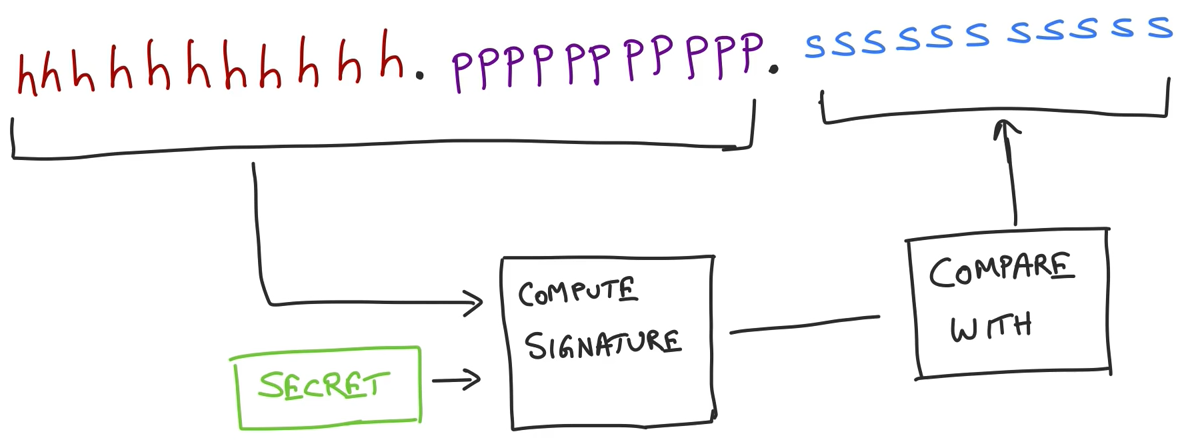 hhhhhhhhhhh.PPPPPPPPPPP.ssssss sssss
COMPUTE
SIGNATURE
SECRET
COMPARE
WITH